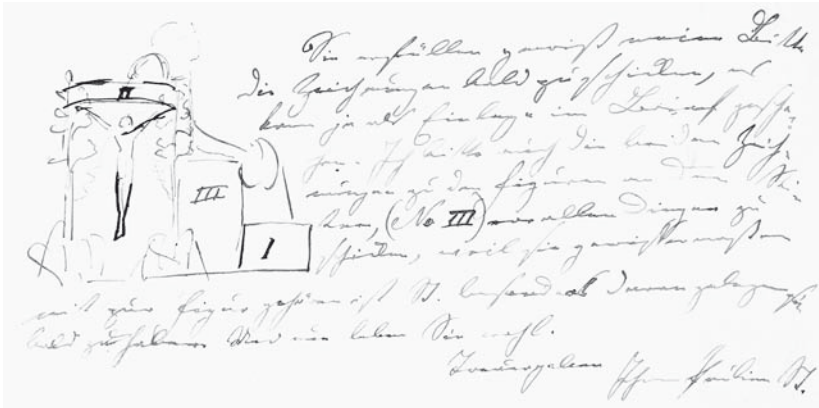 II
III
I
Sie erfüllen gewiß meine Bitte
die Zeichnungen bald zu schicken, es
kann ja als Einlage im Brief gesche-
hen. Ich bitte auch die beiden Zeich-
nungen zu den Figuren an den Sei-
ten, (No III) vor allen Dingen zu
schicken, weil sie gewissermaßen
mit zur Figur gehören ist St. besonders daran gelegen sie
bald zu haben. Und nun leben Sie wohl.
Treuergeben Ihre Pauline St.